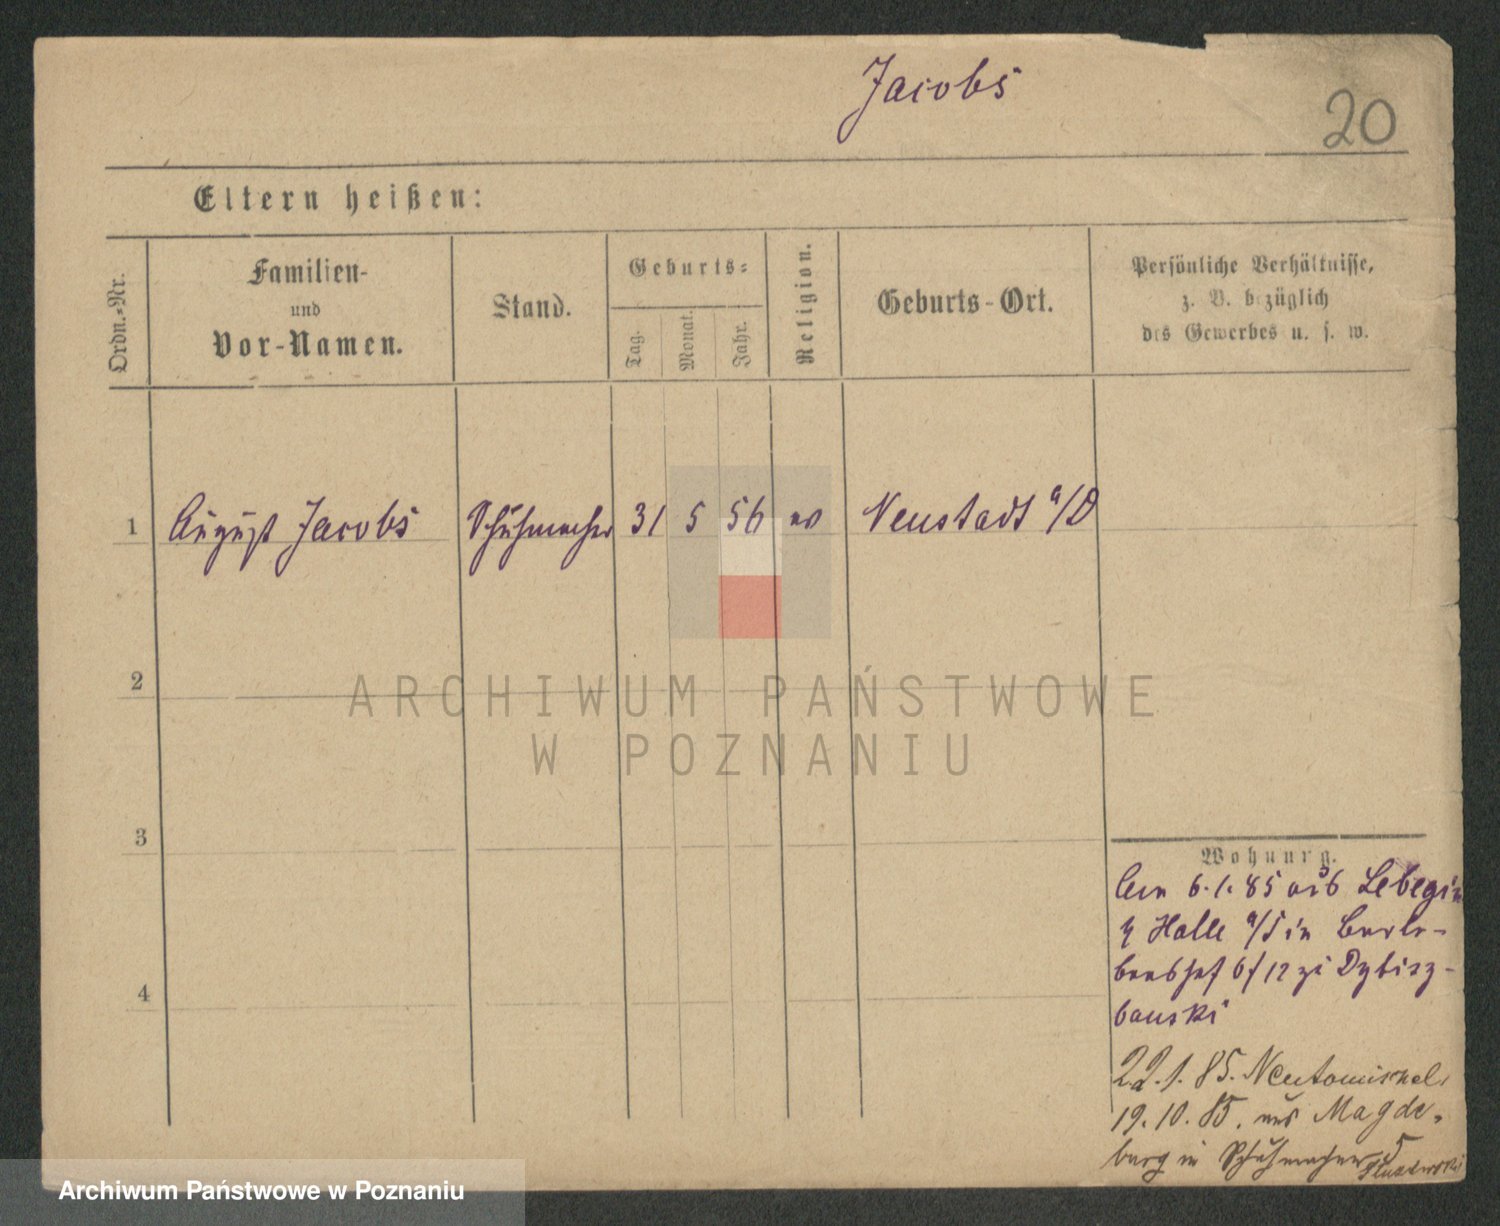 Jacobs
20
Eltern heißen:
Ordn.-Nr.
Familien-
und
Vor-Namen.
Stand.
Geburts-
Tag.
Monat.
Jahr.
Religion.
Geburts-Ort.
Persönliche Verhältnisse,
z. B. bezüglich
des Gewerbes u. s. w.
1
August Jacobs
Schuhmacher
31
5
56
Neustadt a/D
2
ARCHIWUM PAŃSTWOWE
W POZNANIU
3
4
Wohnung.
6.1.85 aus
Halle a/S in
6/12
22.1.85. Neutomischel
19.10.85. aus Magde-
burg in Schuhmacherstr. 5
Archiwum Państwowe w Poznaniu